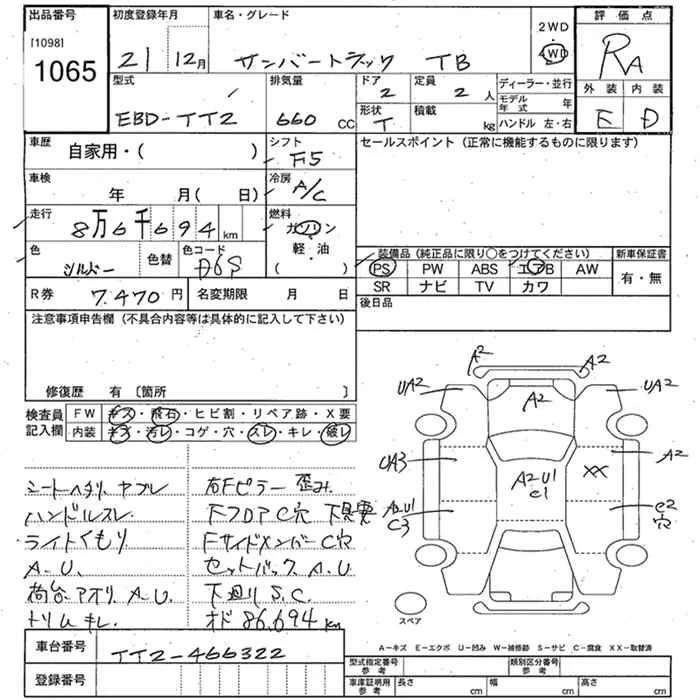 出品番号
[1098]
1065
初度登録年月
21 12月
車名・グレード
サンバートラック TB
2WD
4WD
評価点
RA
外装 内装
E D
型式
EBD-TT2
排気量
660 CC
ドア
2
定員
2 人
形状
T
積載
kg
ディーラー・並行
モデル年式 年
ハンドル 左・右
車歴
自家用・( )
シフト
F5
セールスポイント (正常に機能するものに限ります)
車検
年 月( 日)
冷房
A/C
走行
8万6千694km
燃料
ガソリン
軽・油
( )
色
シルバー
色替
色コード
D6S
装備品 (純正品に限り○をつけてください)
新車保証書
PS PW ABS エアB AW
SR ナビ TV カワ
有・無
R券
7.470円
名変期限 月 日
後日品
注意事項申告欄 (不具合内容等は具体的に記入して下さい)
修復歴 有 〔箇所 〕
検査員記入欄
FW キズ・飛石・ヒビ割・リペア跡・X要
内装 キズ・汚レ・コゲ・穴・スレ・キレ・破レ
シートヘタリ ヤブレ
ハンドルスレ
ライトくもり
A.U.
荷台アオリ A.U
トリムキレ
右Fピラー 歪み
FフロアC穴
FサイドメンバーC穴
セットバック A.U
下廻り S.C.
オド 86,694 km
A2
A2
UA2
A2
UA2
UA3
A2U1
C1
XX
A2
A2U1
C3
C2
穴
スペア
A-キズ E-エクボ U-凹み W-補修跡 S-サビ C-腐食 XX-取替済
車台番号
TT2-466322
登録番号
型式指定番号 参考
類別区分番号 参考
車庫証明用 参考
長さ cm
幅 cm
高さ cm